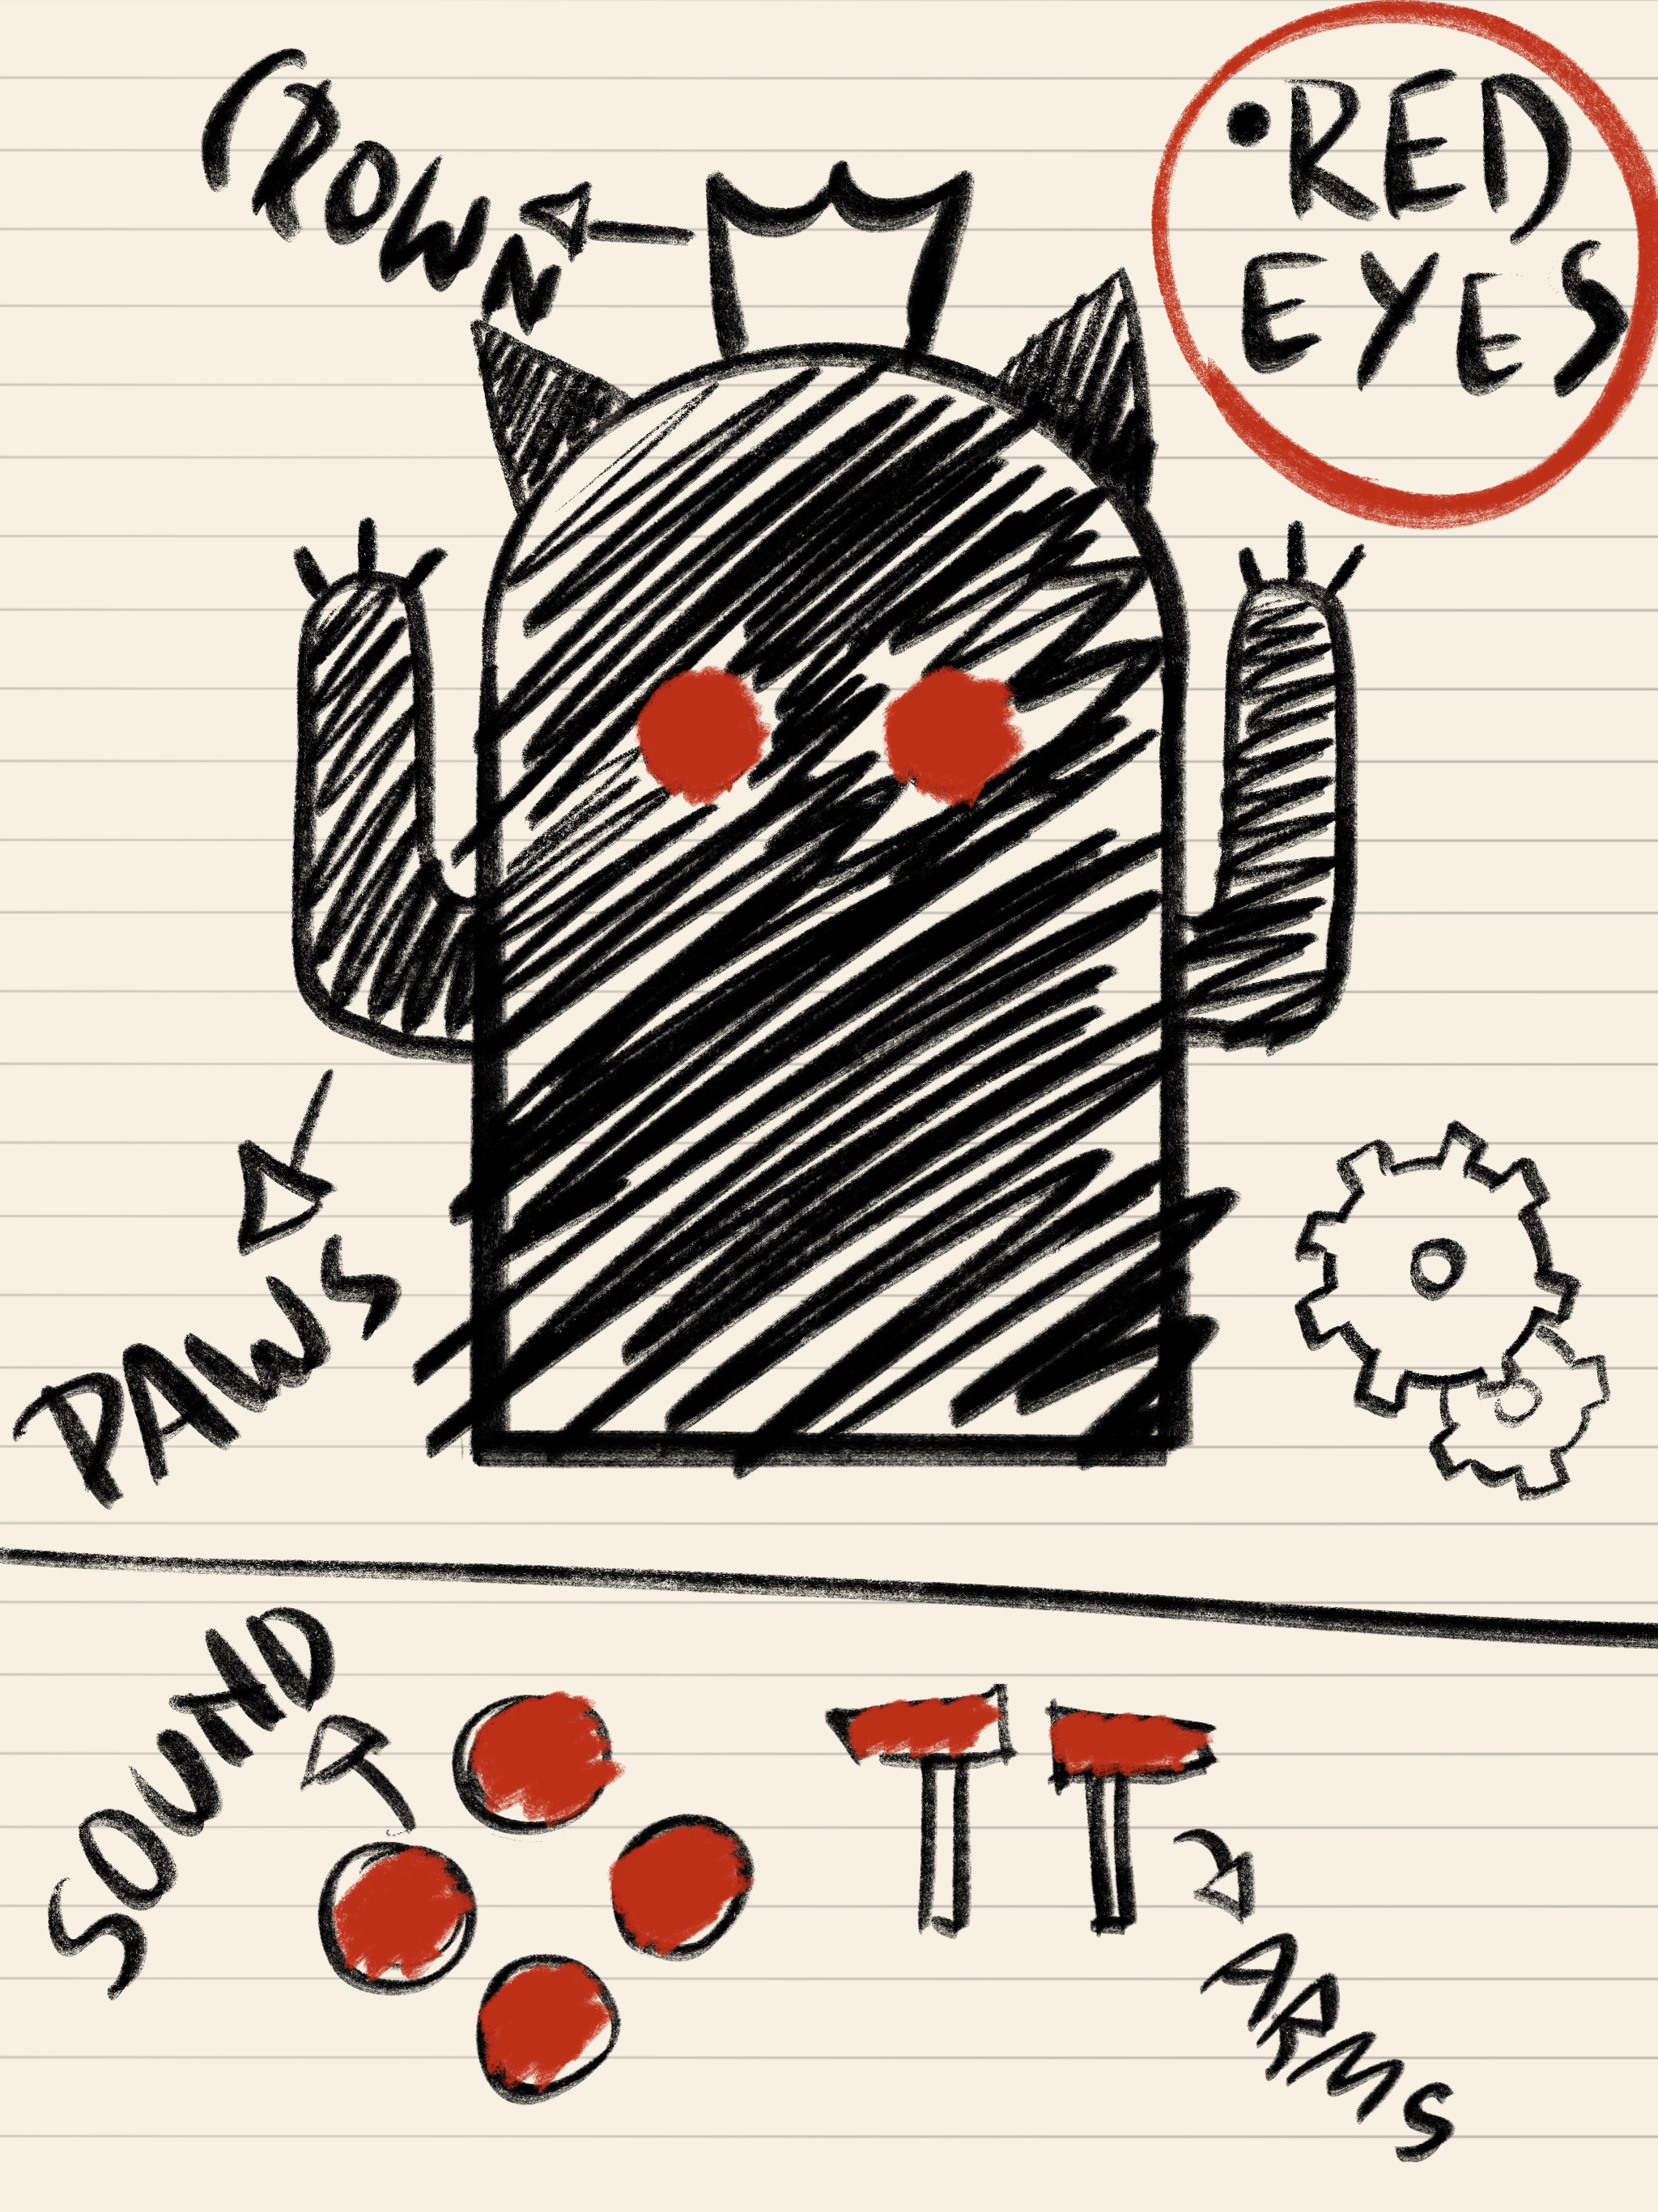 CROWN
•RED
EYES
PAWS
SOUND
ARMS